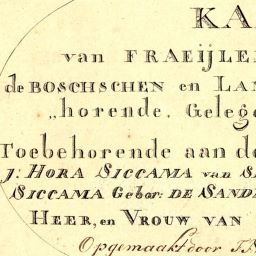 KA
van FRAEIJLE
de BOSCHSCHEN en LAN
„horende, Gelege
Toebehorende aan de
J: HORA SICCAMA van S
SICCAMA Gebor: DE SANDE
HEER, en VROUW VAN
Opgemaakt door J.